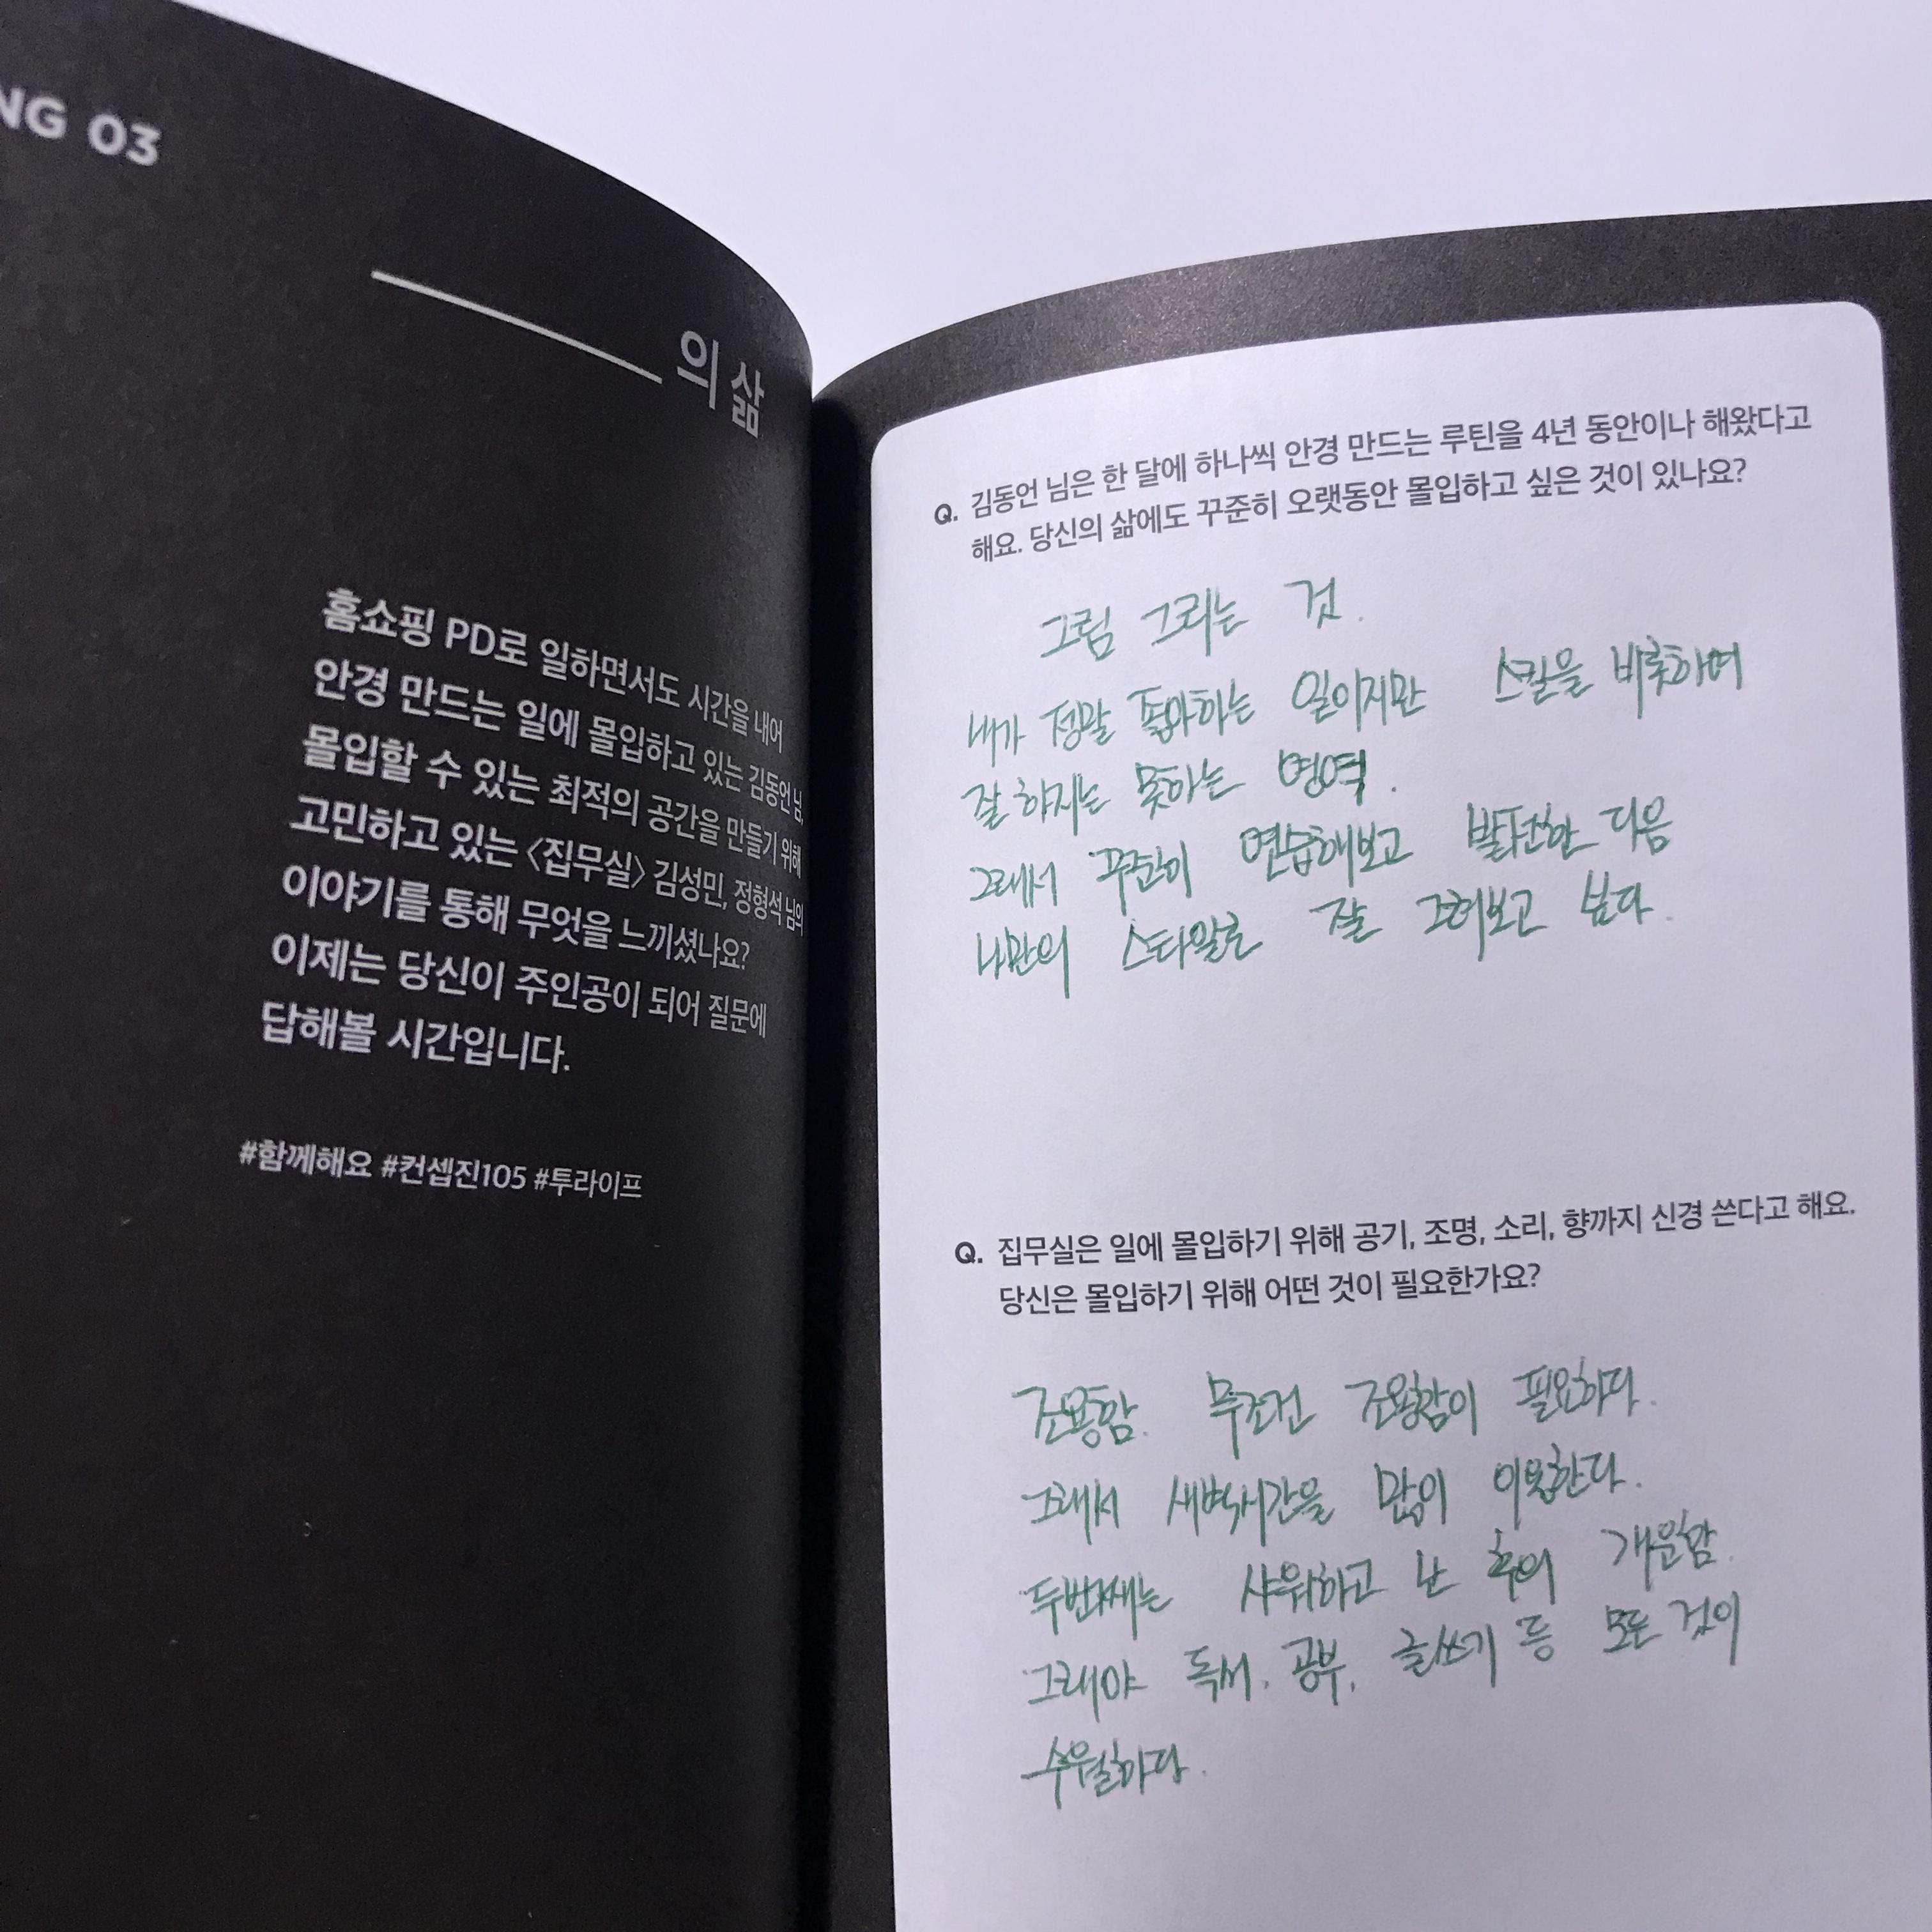 NG 03
의 삶
홈쇼핑 PD로 일하면서도 시간을 내어
안경 만드는 일에 몰입하고 있는 김동언 님,
몰입할 수 있는 최적의 공간을 만들기 위해
고민하고 있는 〈집무실〉 김성민, 정형석 님의
이야기를 통해 무엇을 느끼셨나요?
이제는 당신이 주인공이 되어 질문에
답해볼 시간입니다.
#함께해요 #컨셉진105 #투라이프
Q. 김동언 님은 한 달에 하나씩 안경 만드는 루틴을 4년 동안이나 해왔다고
해요. 당신의 삶에도 꾸준히 오랫동안 몰입하고 싶은 것이 있나요?
그림 그리는 것.
내가 정말 좋아하는 일이지만 스킬을 비롯하여
잘 하지는 못하는 영역.
그래서 꾸준히 연습해보고 발전한 다음
나만의 스타일로 잘 그려보고 싶다.
Q. 집무실은 일에 몰입하기 위해 공기, 조명, 소리, 향까지 신경 쓴다고 해요.
당신은 몰입하기 위해 어떤 것이 필요한가요?
조용함. 무조건 조용함이 필요하다.
그래서 새벽시간을 많이 이용한다.
두번째는 샤워하고 난 후의 개운함.
그래야 독서, 공부, 글쓰기 등 모든 것이
수월하다.